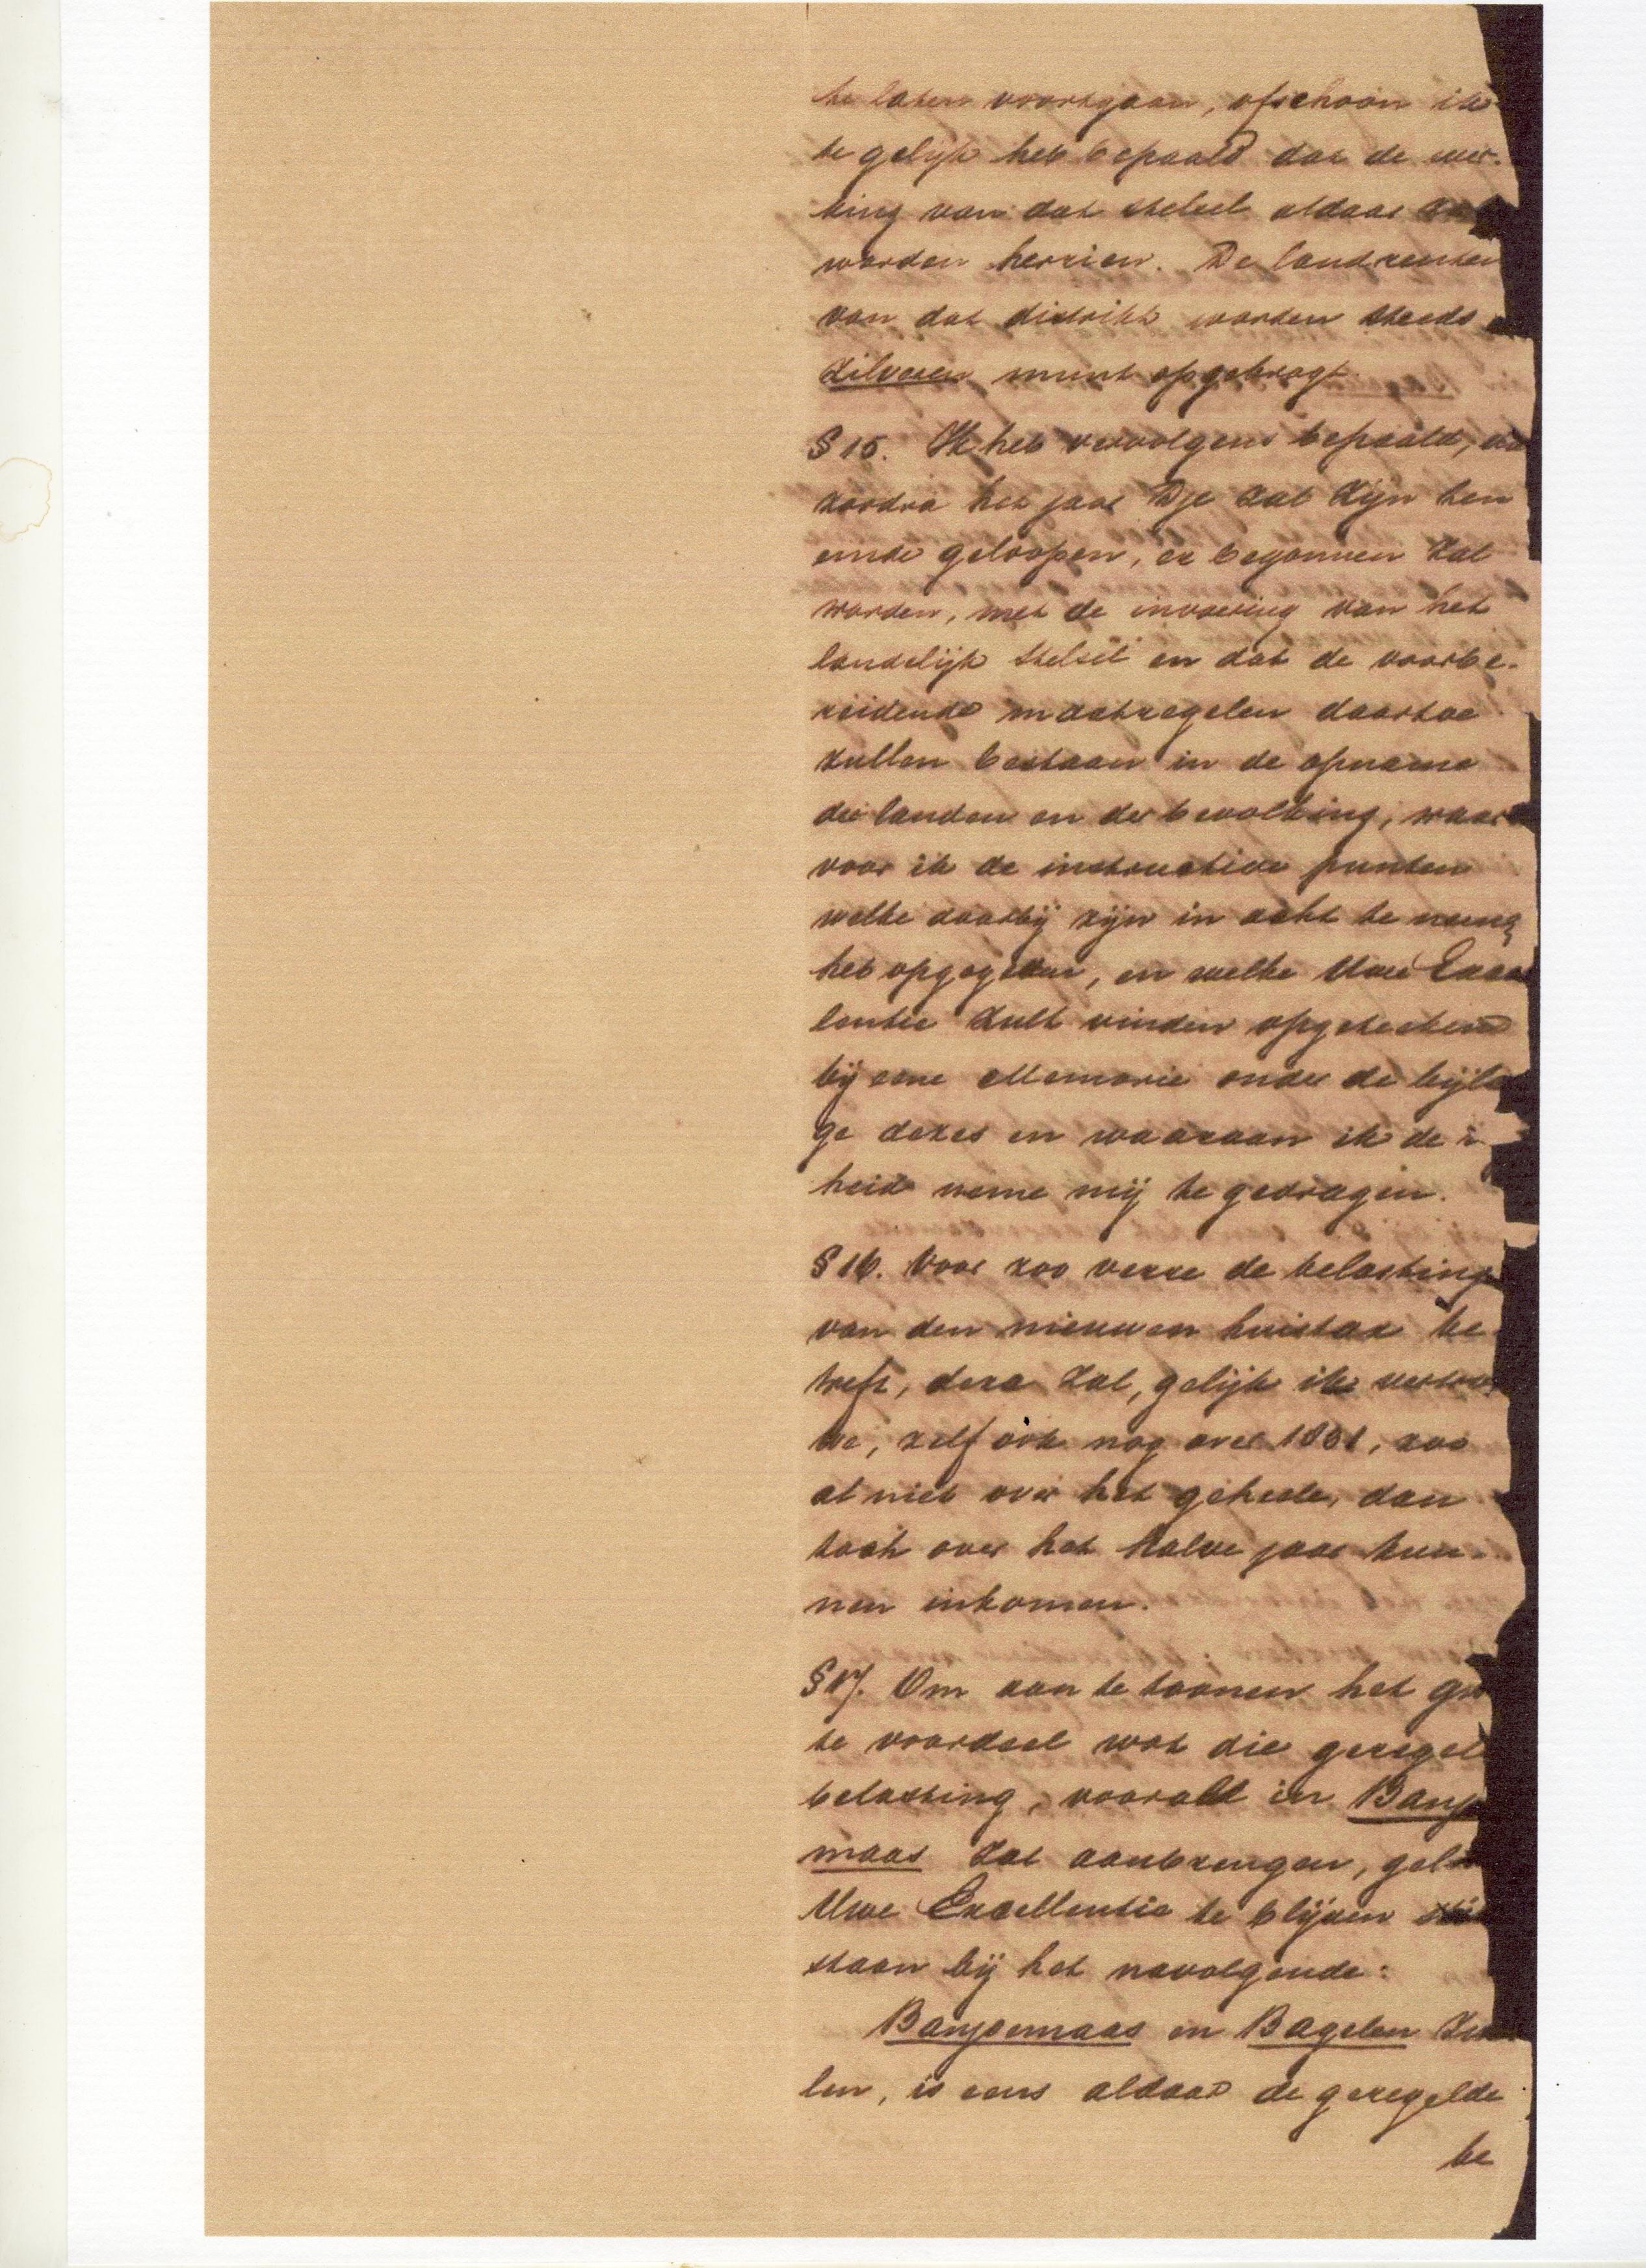 te laten voortgaan, ofschoon ik
te gelijk heb bepaald dat de wer-
king van dat stelsel aldaar
worden herzien. De landrenten
van dat distrikt worden steeds
zilveren munt opgebragt.
§ 15. Ik heb vervolgens bepaald,
zoodra het jaar Dje zal zijn ten
einde geloopen, er begonnen zal
worden, met de invoering van het
landelijk stelsel en dat de voorbe-
reidende maatregelen daartoe
zullen bestaan in de opname
der landen en der bevolking, waar
voor ik de instructive punten
welke daarbij zijn in acht te
heb opgegeven, en welke Uwe Excel
lentie zult vinden opgetekend
bij eene Memorie onder de bijla
ge dezes en waaraan ik de
heid neme mij te gedragen.
§ 16. Voor zoo verre de belasting
van den nieuwen huistax be
treft, deze zal, gelijk ik vertrou
we, zelf ook nog over 1831, zoo
al niet over het geheele, dan
toch over het halve jaar kun-
nen inkomen.
§ 17. Om aan te toonen het gro
te voordeel wat die geregel
belasting, vooral in Banjo
maas zal aanbrengen, gel
Uwe Excellentie te blijven stil
staan bij het navolgende:
Banjoemaas en Bagelen zul
len, is eens aldaar de geregelde
be